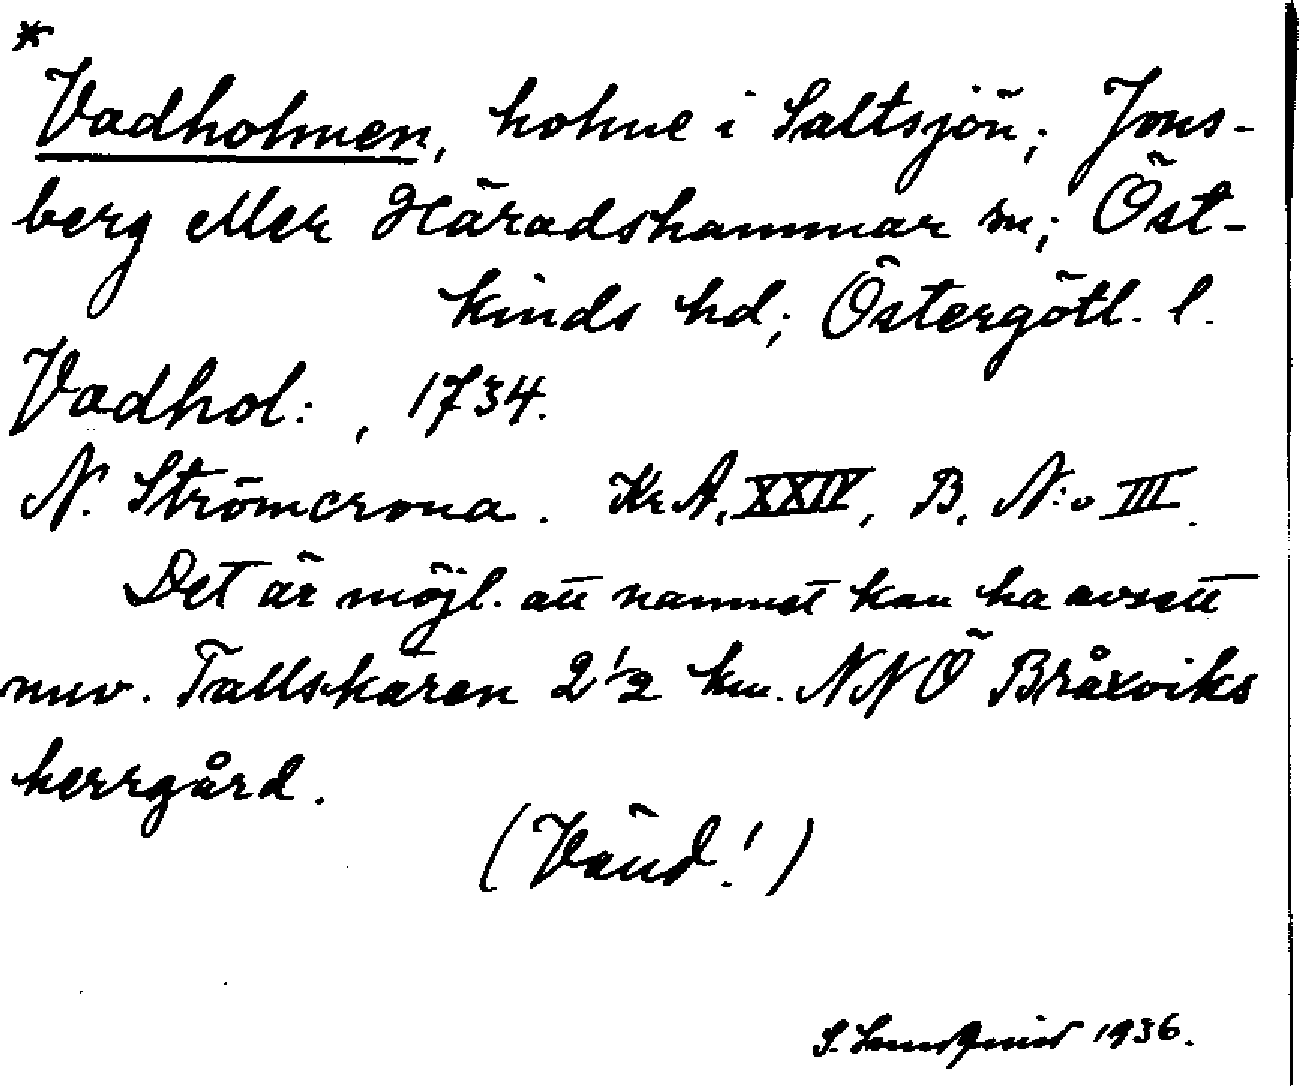 *
Vadholmen, holme i Saltsjön; Jons-
berg eller Häradshammar sn; Öst-
kinds hd; Östergötl. l.
Vadhol: , 1734.
N. Strömcrona. Kr.A. XXIV, B. N:o III.
Det är möjl. att namnet kan ha avsett
nuv. Tallskären 2 1/2 km. NNÖ Bråxviks
herrgård.
(Vänd!)
S. 1936.